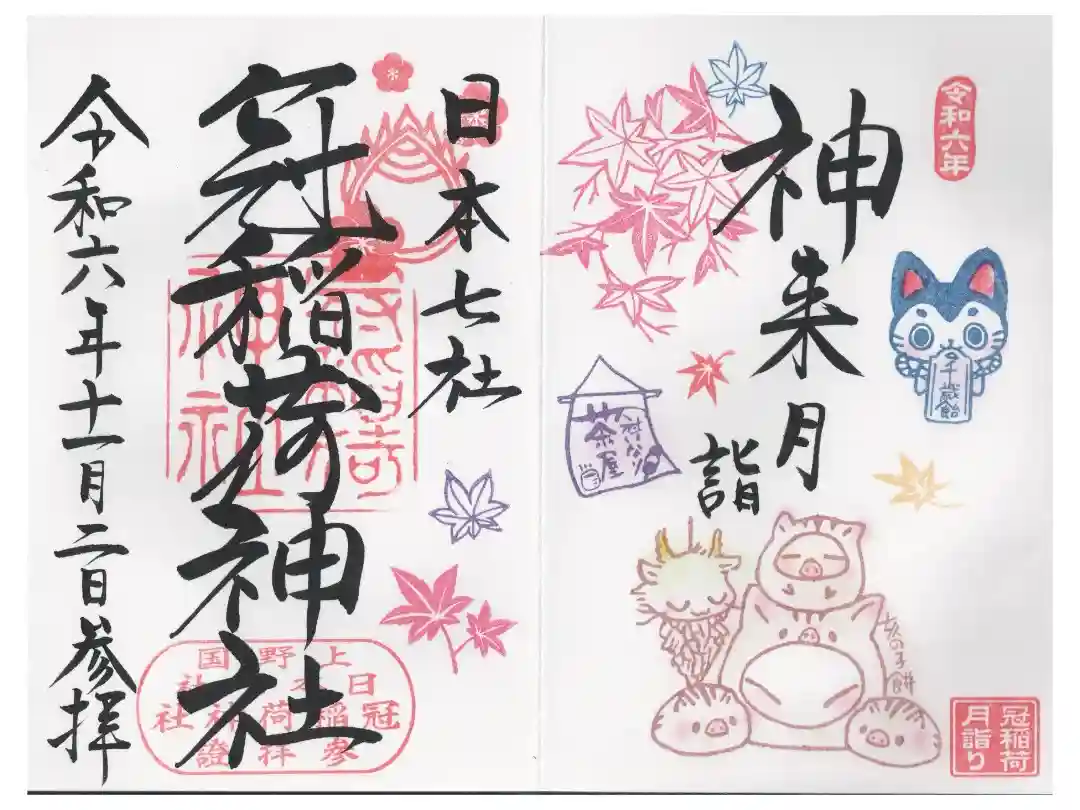 令和六年
神来月
詣
千歳飴
冠いなり
茶屋
亥の子餅
冠稲荷
月詣り
日本七社
冠稲荷神社
上野国
日本七社
冠稲荷神社
参拝證
令和六年十一月二日参拝